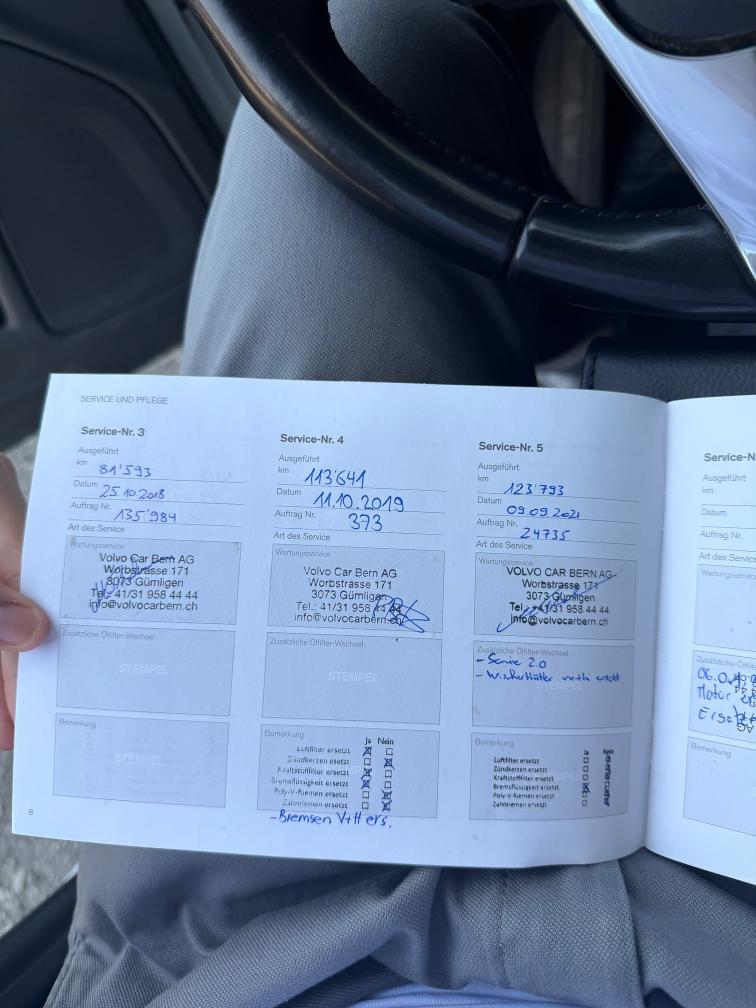 SERVICE UND PFLEGE
Service-Nr. 3
Ausgeführt
km 81'593
Datum 25.10.2018
Auftrag Nr. 135'984
Art des Service
Wartungsservice
Volvo Car Bern AG
Worbstrasse 171
3073 Gümligen
Tel.: 41/31 958 44 44
info@volvocarbern.ch
Zusätzliche Ölfilter-Wechsel
STEMPEL
Bemerkung
STEMPEL
8
Service-Nr. 4
Ausgeführt
km 113'641
Datum 11.10.2019
Auftrag Nr. 373
Art des Service
Wartungsservice
Volvo Car Bern AG
Worbstrasse 171
3073 Gümligen
Tel.: 41/31 958 44 44
info@volvocarbern.ch
Zusätzliche Ölfilter-Wechsel
STEMPEL
Bemerkung
Ja Nein
Luftfilter ersetzt
Zündkerzen ersetzt
Kraftstofffilter ersetzt
Bremsflüssigkeit ersetzt
Poly-V-Riemen ersetzt
Zahnriemen ersetzt
- Bremsen V+H ers.
Service-Nr. 5
Ausgeführt
km 123'793
Datum 09.09.2021
Auftrag Nr. 24735
Art des Service
Wartungsservice
VOLVO CAR BERN AG
Worbstrasse 171
3073 Gümligen
Tel.: +41/31 958 44 44
info@volvocarbern.ch
Zusätzliche Ölfilter-Wechsel
- Service 2.0
STEMPEL
Bemerkung
Luftfilter ersetzt
Zündkerzen ersetzt
Kraftstofffilter ersetzt
Bremsflüssigkeit ersetzt
Poly-V-Riemen ersetzt
Zahnriemen ersetzt
Service-N
Ausgeführt
km
Datum
Auftrag Nr.
Art des Service
Wartungsservice
Zusätzliche Ölfilter
Motor
Bemerkung